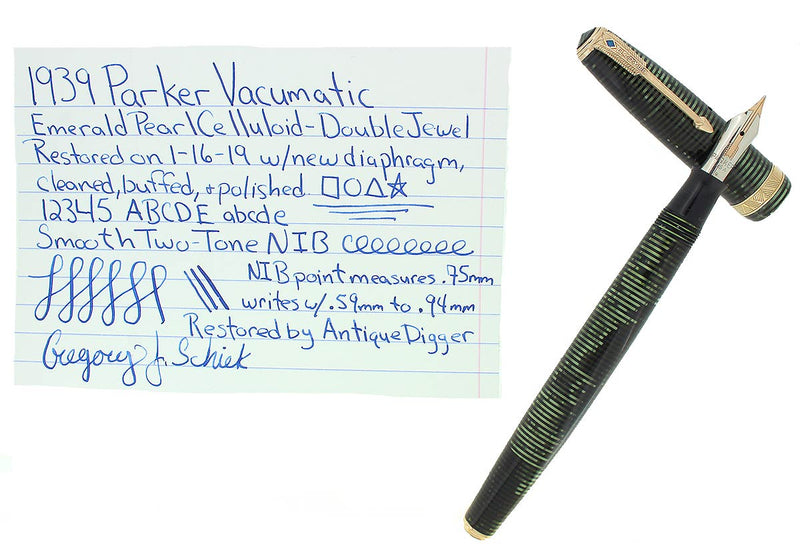 1939 Parker Vacumatic
Emerald Pearl Celluloid-Double Jewel
Restored on 1-16-19 w/new diaphragm,
cleaned, buffed, + polished
12345 ABCDE abcde
Smooth Two-Tone NIB eeeeeeee
NIB point measures .75mm
writes w/ .59mm to .94mm
Restored by Antique Digger
Gregory J. Schiek